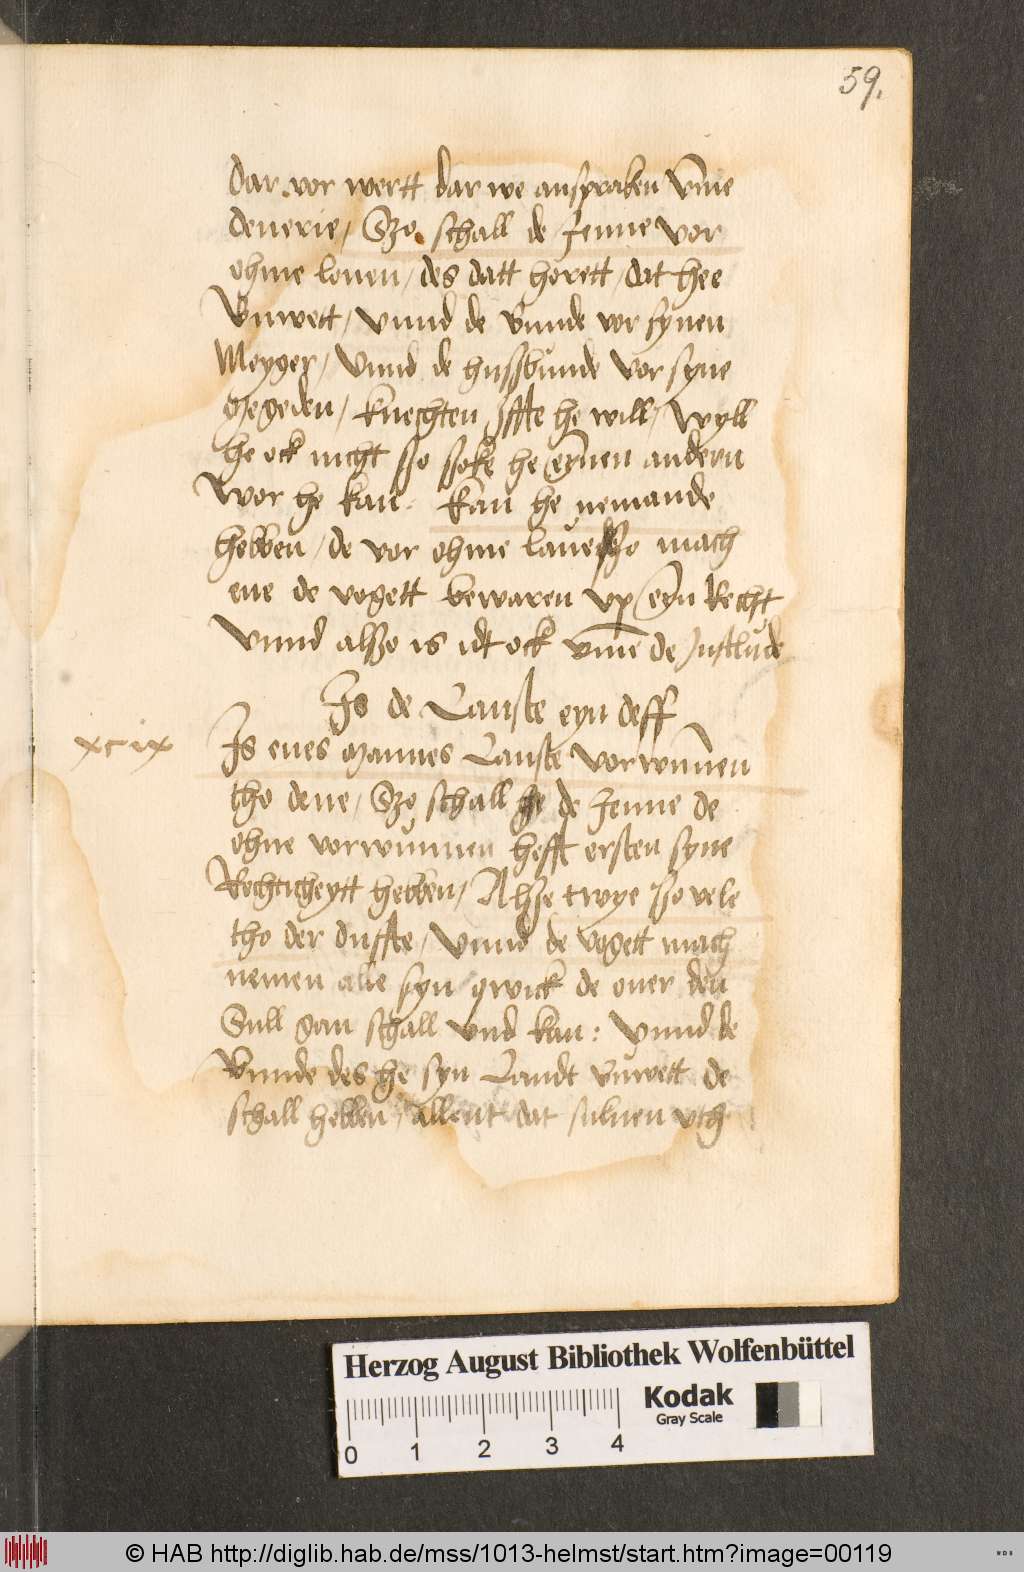 59.
dar vor wertt dar we anspraken vmme
deuerie / Szo schall de Jenne vor
ohme louen / des datt horett / dat hee
Buwett / vnnd de Bunde vor synen
Meyger / Vnnd de hussbunde vor syne
megeden / knechten Jffte he will / Wyll
he ock nicht sso ssoke he eynen andern
Wor he kan. Kan he nemande
hebben / de vor ohme laue szo mach
ene de vogett bewaren vp eyn Recht
Vnnd alsso is idt ock vmme de Justlude
Js de Lanste eyn deff
xcix
Js enes mannes Lanste vorwunnen
tho deue / Szo schall he de Jenne de
ohne vorwunnen hefft ersten syne
Rechticheytt hebben / Alsse twye sso vele
tho der duffte / Vnnd de vogett mach
nemen alle syn qwick de ouer den
Sull gan schall vnd kan : Vnnd de
Bunde des he syn Landt buwett de
schall hebben / allent dat suluen vth
Herzog August Bibliothek Wolfenbüttel
Kodak
Gray Scale
0 1 2 3 4
© HAB http://diglib.hab.de/mss/1013-helmst/start.htm?image=00119